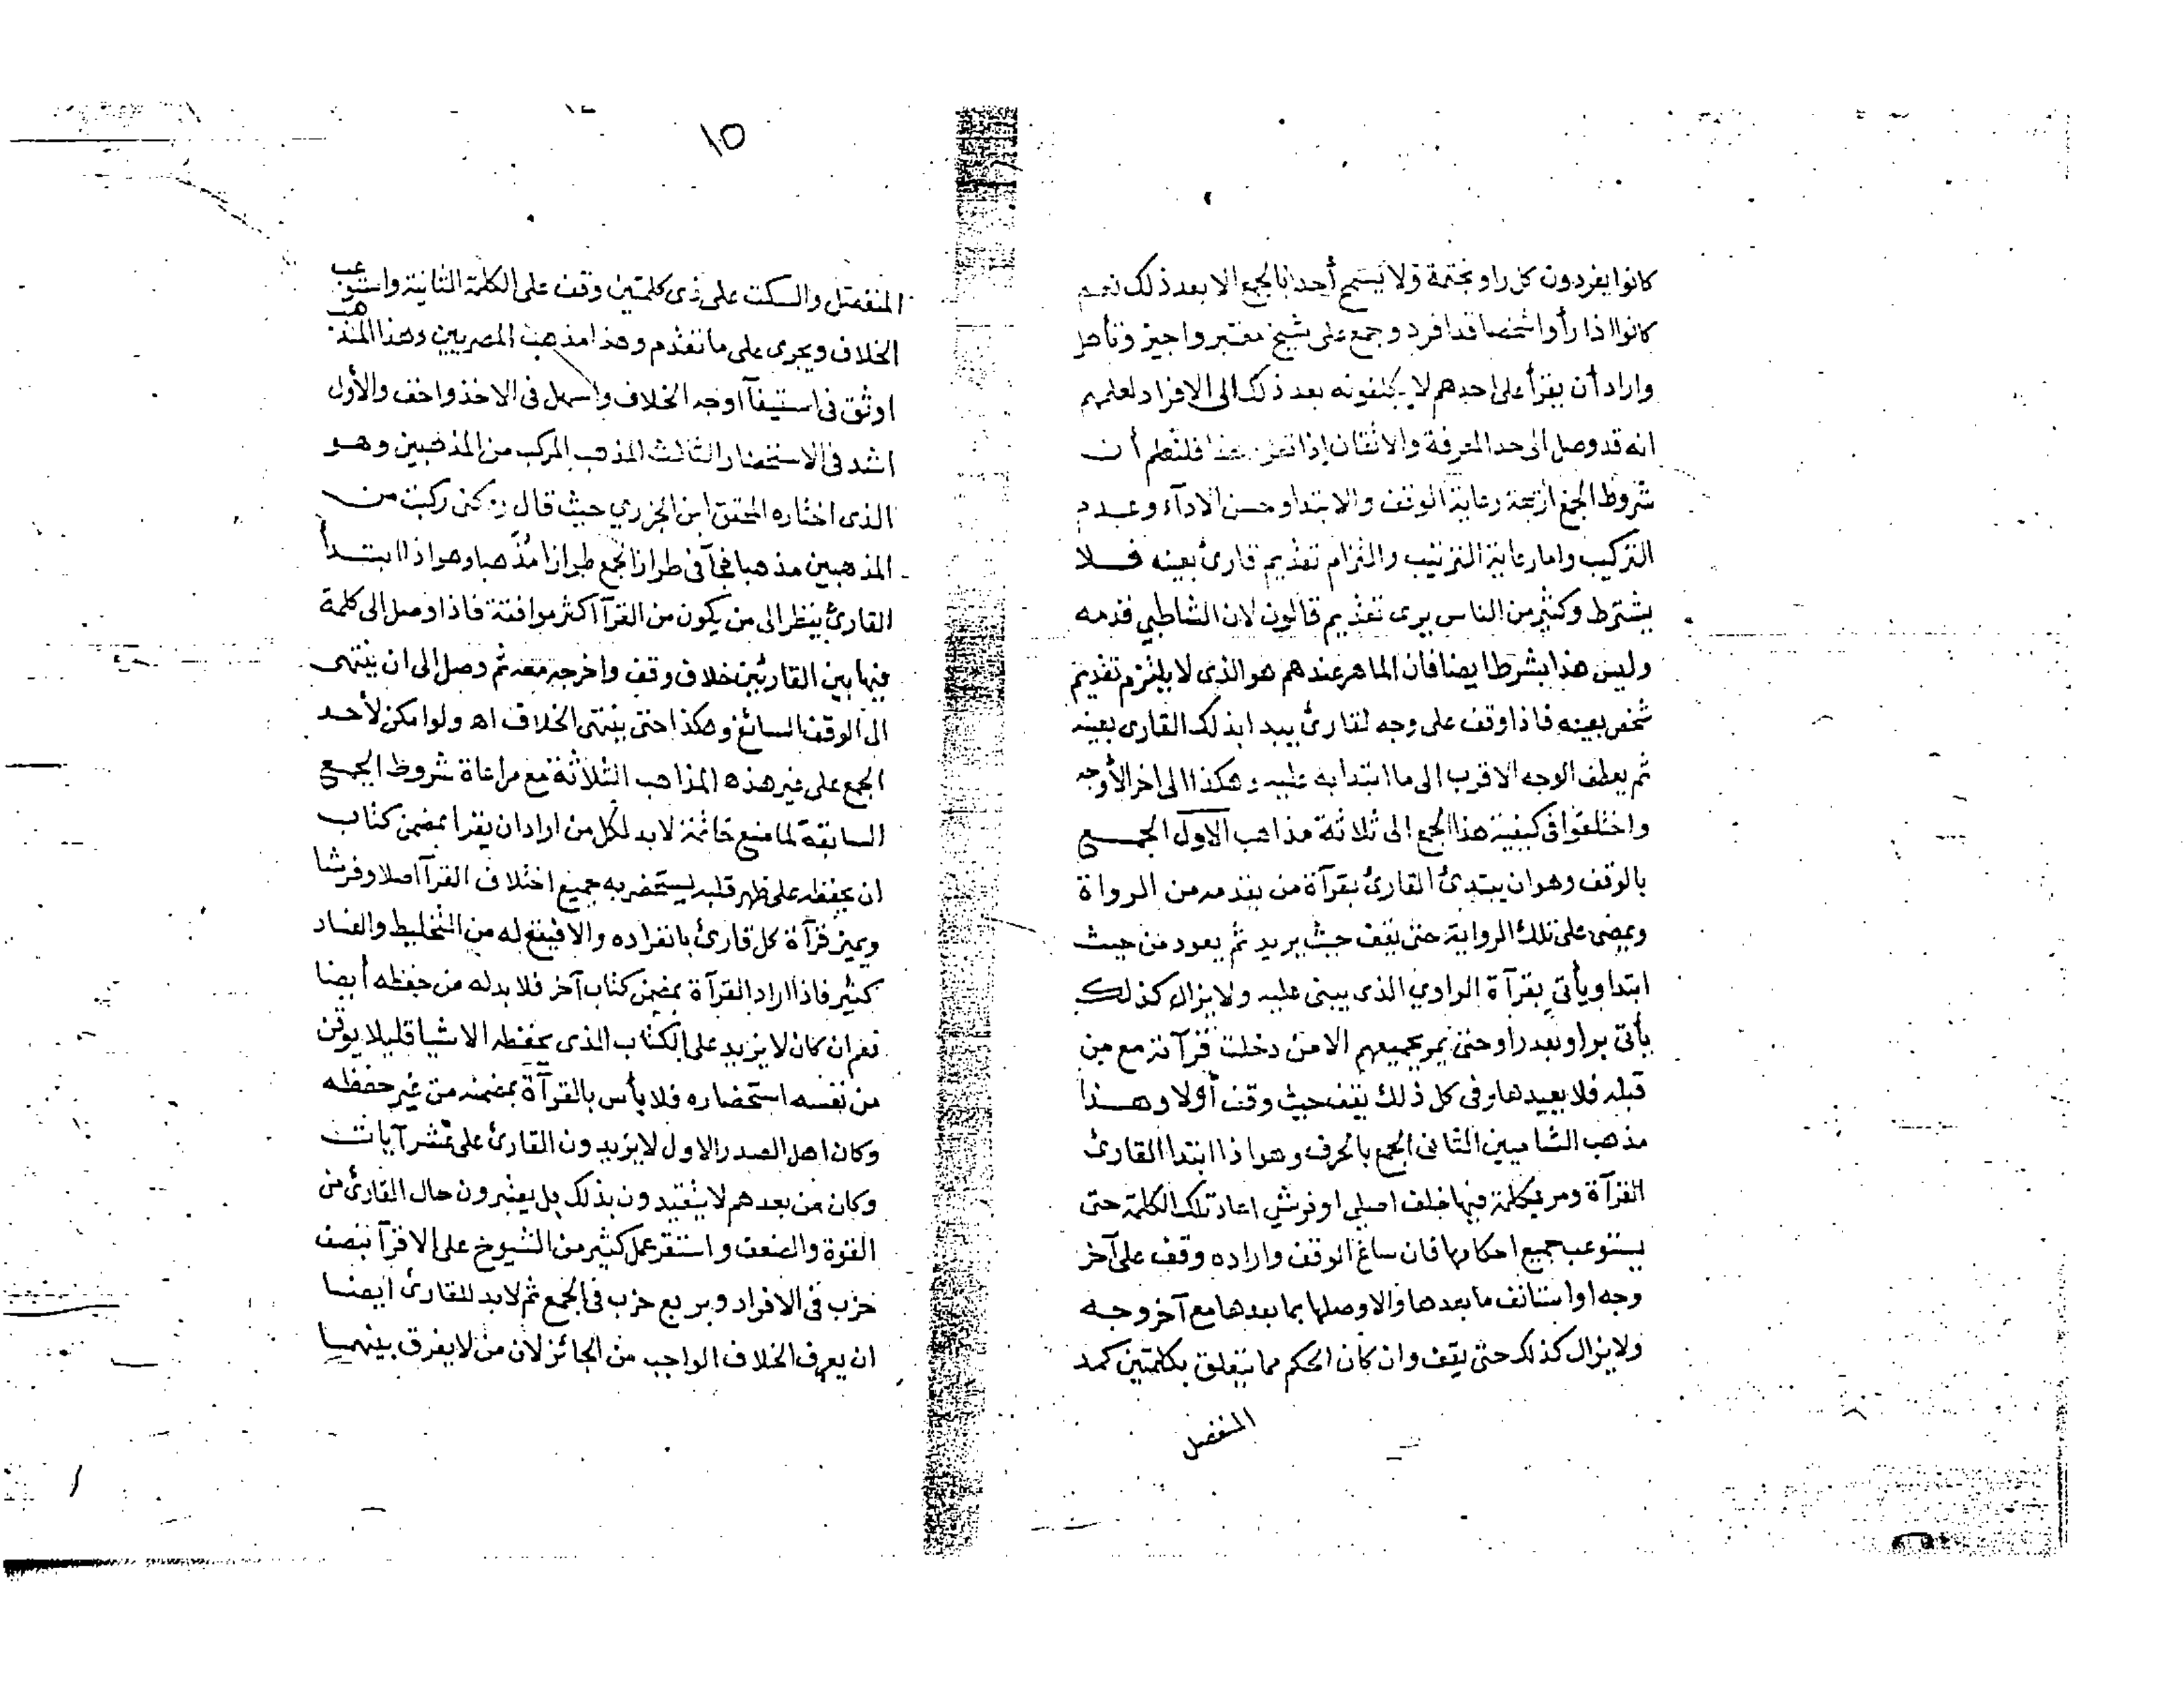 كانوا يفردون كل راو بختمة ولا يسمح أحد بالجمع الا بعد ذلك نعم
كانوا اذا رأوا شخصا قد افرد وجمع على شيخ معتبر واجيز وتأهل
واراد أن يقرأ على احدهم لا يكلفونه بعد ذلك الى الافراد لعلمهم
انه قد وصل الى حد المعرفة والاتقان إذا تقرر هذا فلتعلم أن
شروط الجمع أربعة رعاية الوقف والابتدا وحسن الاداء وعدم
التركيب واما رعاية الترتيب والتزام تقديم قارئ بعينه فلا
يشترط وكثير من الناس يرى تقديم قالون لان الشاطبي قدمه
وليس هذا بشرط ايضا فان الماهر عندهم هو الذى لا يلتزم تقديم
شخص بعينه فاذا وقف على وجه لقارئ يبدا بذلك القارى بعينه
ثم يعطف الوجه الاقرب الى ما ابتدا به عليه وهكذا الى اخر الأوجه
واختلفوا فى كيفية هذا الجمع الى ثلاثة مذاهب الاول الجمع
بالوقف وهو ان يبتدئ القارئ بقرآة من يقدمه من الرواة
ويمضى على تلك الرواية حتى يقف حيث يريد ثم يعود من حيث
ابتدا ويأتى بقرآة الراوي الذى يبنى عليه ولا يزال كذلك
يأتى براو بعد راو حتى يمر بجميعهم الا من دخلت قرآته مع من
قبله فلا يعيدها وفى كل ذلك يقف حيث وقف أولا وهذا
مذهب الشاميين الثانى الجمع بالحرف وهو اذا ابتدا القارئ
القرآة ومر بكلمة فيها خلف اصلي او فرشي اعاد تلك الكلمة حتى
يستوعب جميع احكامها فان ساغ الوقف واراده وقف على آخر
وجه او استانف ما بعدها والا وصلها بما بعدها مع آخر وجه
ولا يزال كذلك حتى يقف وان كان الحكم مما يتعلق بكلمتين كمد
المنفصل
١٥
المنفصل والسكت على ذى كلمتين وقف على الكلمة الثانية واستوعب
الخلاف ويجرى على ما تقدم وهذا مذهب المصريين وهذا المذهب
اوثق فى استيفآ اوجه الخلاف واسهل فى الاخذ واخف والأول
اشد فى الاستحضار الثالث المذهب المركب من المذهبين وهو
الذى اختاره المحقق ابن الجزري حيث قال ولكنى ركبت من
المذهبين مذهبا فجآ فى طراز الجمع طرازا مُذَهبا وهو اذا ابتدأ
القارئ ينظر الى من يكون من القرآ اكثر موافقة فاذا وصل الى كلمة
فيها بين القارئين خلاف وقف واخرجه معه ثم وصل الى ان ينتهى
الى الوقف السائغ وهكذا حتى ينتهى الخلاف اه ولو امكن لأحد
الجمع على غير هذه المذاهب الثلاثة مع مراعاة شروط الجمع
السابقة لما منع خاتمة لابد لكل من اراد ان يقرا بمضمن كتاب
ان يحفظه على ظهر قلبه ليستحضر به جميع اختلاف القرآ اصلا وفرشا
ويميز قرآة كل قارئ بانفراده والا فيقع له من التخليط والفساد
كثير فاذا اراد القرآة بمضمن كتاب آخر فلا بد له من حفظه أيضا
نعم ان كان لا يزيد على الكتاب الذى يحفظه الا شيا قليلا يوقن
من نفسه استحضاره فلا بأس بالقرآة بمضمنه من غير حفظه
وكان اهل الصدر الاول لا يزيدون القارئ على عشر آيات
وكان من بعدهم لا يتقيدون بذلك بل يعتبرون حال القارئ من
القوة والضعف واستقر عمل كثير من الشيوخ على الاقرآ بنصف
حزب فى الافراد وبربع حزب فى الجمع ثم لابد للقارئ ايضا
ان يعرف الخلاف الواجب من الجائز لان من لا يفرق بينهما